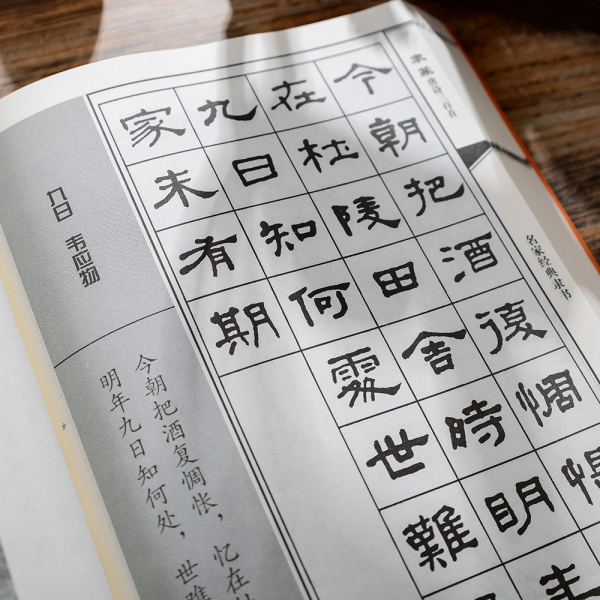 唐诗一百首
名家经典隶书
今朝把酒復惆悵
在杜陵田舍時明年
九日知何處世難
家未有期
九日 韦应物
今朝把酒复惆怅，忆在
明年九日知何处，世难